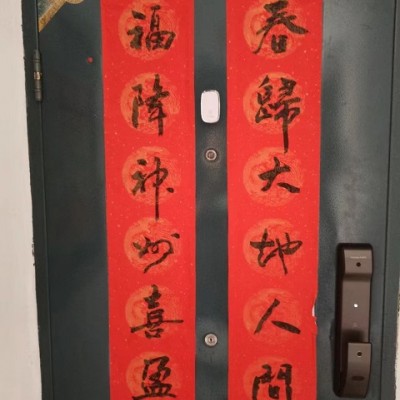 春歸大地人間
福降神州喜盈